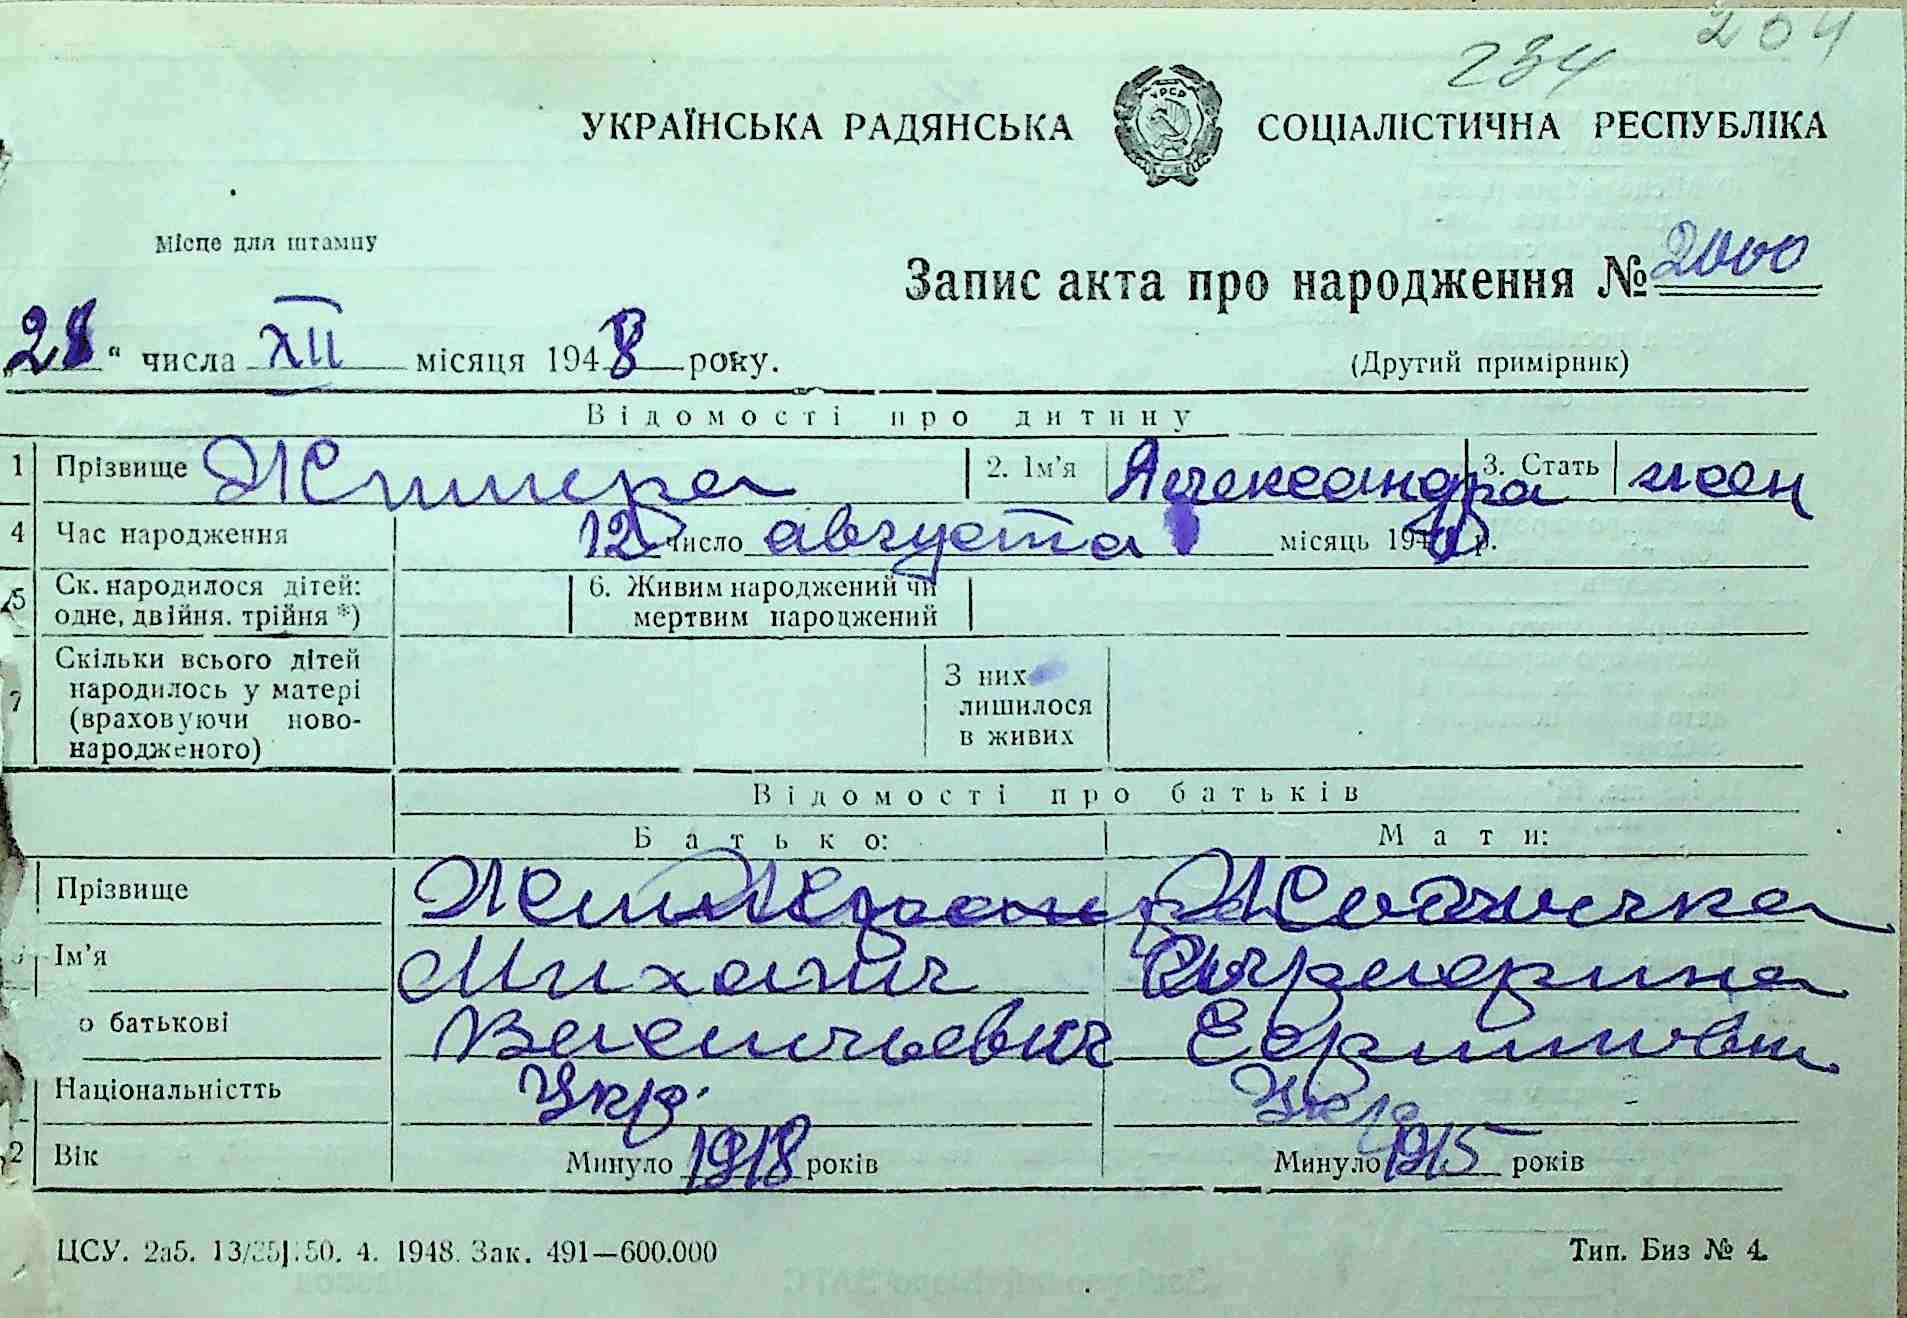 204
234
УКРАЇНСЬКА РАДЯНСЬКА СОЦІАЛІСТИЧНА РЕСПУБЛІКА
УРСР
Місце для штампу
Запис акта про народження № 2000
28 " числа XII місяця 1948 року.
(Другий примірник)
Відомості про дитину
1 Прізвище 2. Ім'я Александра 3. Стать жен
4 Час народження 12 число августа місяць 194 р.
5 Ск. народилося дітей: 6. Живим народжений чи
одне, двійня, трійня *) мертвим народжений
Скільки всього дітей З них
7 народилось у матері лишилося
(враховуючи ново- в живих
народженого)
Відомості про батьків
Батько: Мати:
Прізвище
Ім'я Михаил
о батькові Ефимовн
Національністть Укр. Укр
2 Вік Минуло 1918 років Минуло 1915 років
ЦСУ. 2а5. 13/ 50. 4. 1948. Зак. 491—600.000 Тип. Биз № 4.